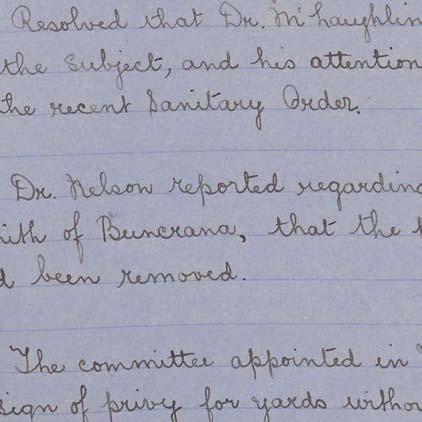 Resolved that Dr. McLaughlin
the subject, and his attention
the recent Sanitary Order.
Dr. Nelson reported regarding
of Buncrana, that the
been removed.
The committee appointed in
of privy for yards